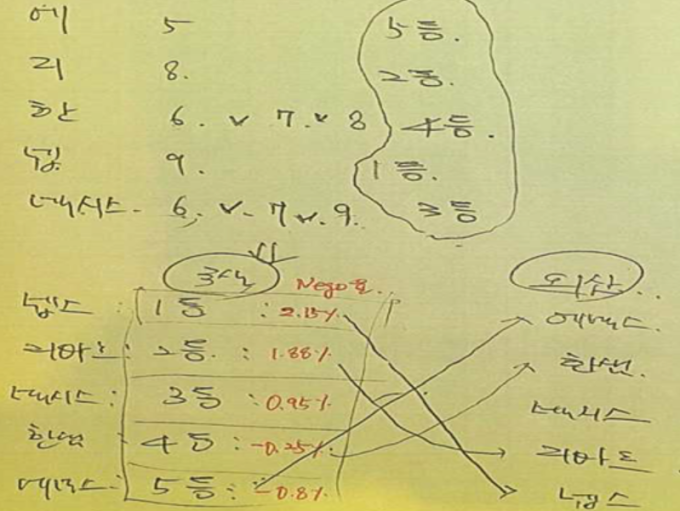 에 5 5등.
리 8. 2등.
한 6. v 7. v 8 4등.
넵 9. 1등.
네시스. 6. v. 7 v. 9. 3등
국산 Nego율.. 외산..
넵스 : 1등 : 2.15% 에넥스.
리아트 : 2등. : 1.88% 한샘.
네시스 : 3등 : 0.95% 네시스
한샘 4등 : -0.25%. 리아트
에넥스 : 5등 : -0.8% 넵스